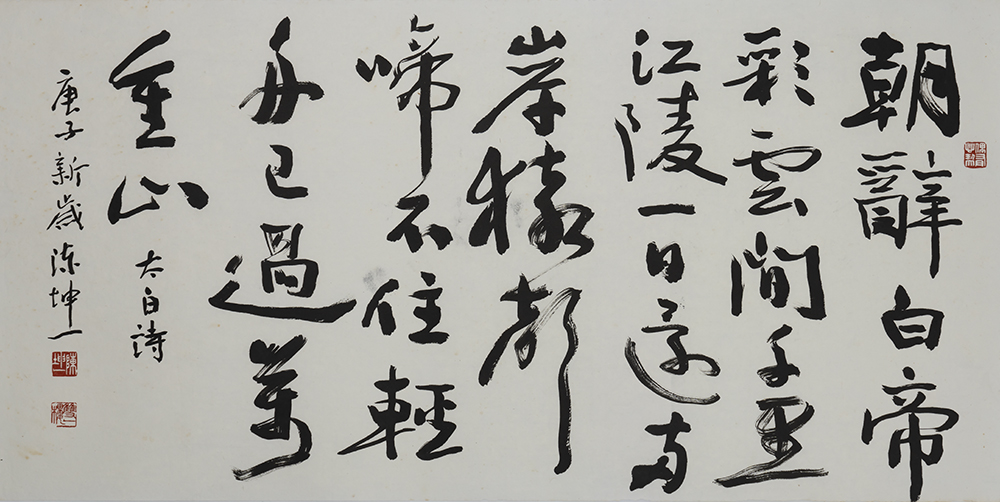 朝辭白帝
彩雲間千里
江陵一日還兩
岸猿聲
啼不住輕
舟已過萬
重山
太白詩
庚子新歲陳坤一